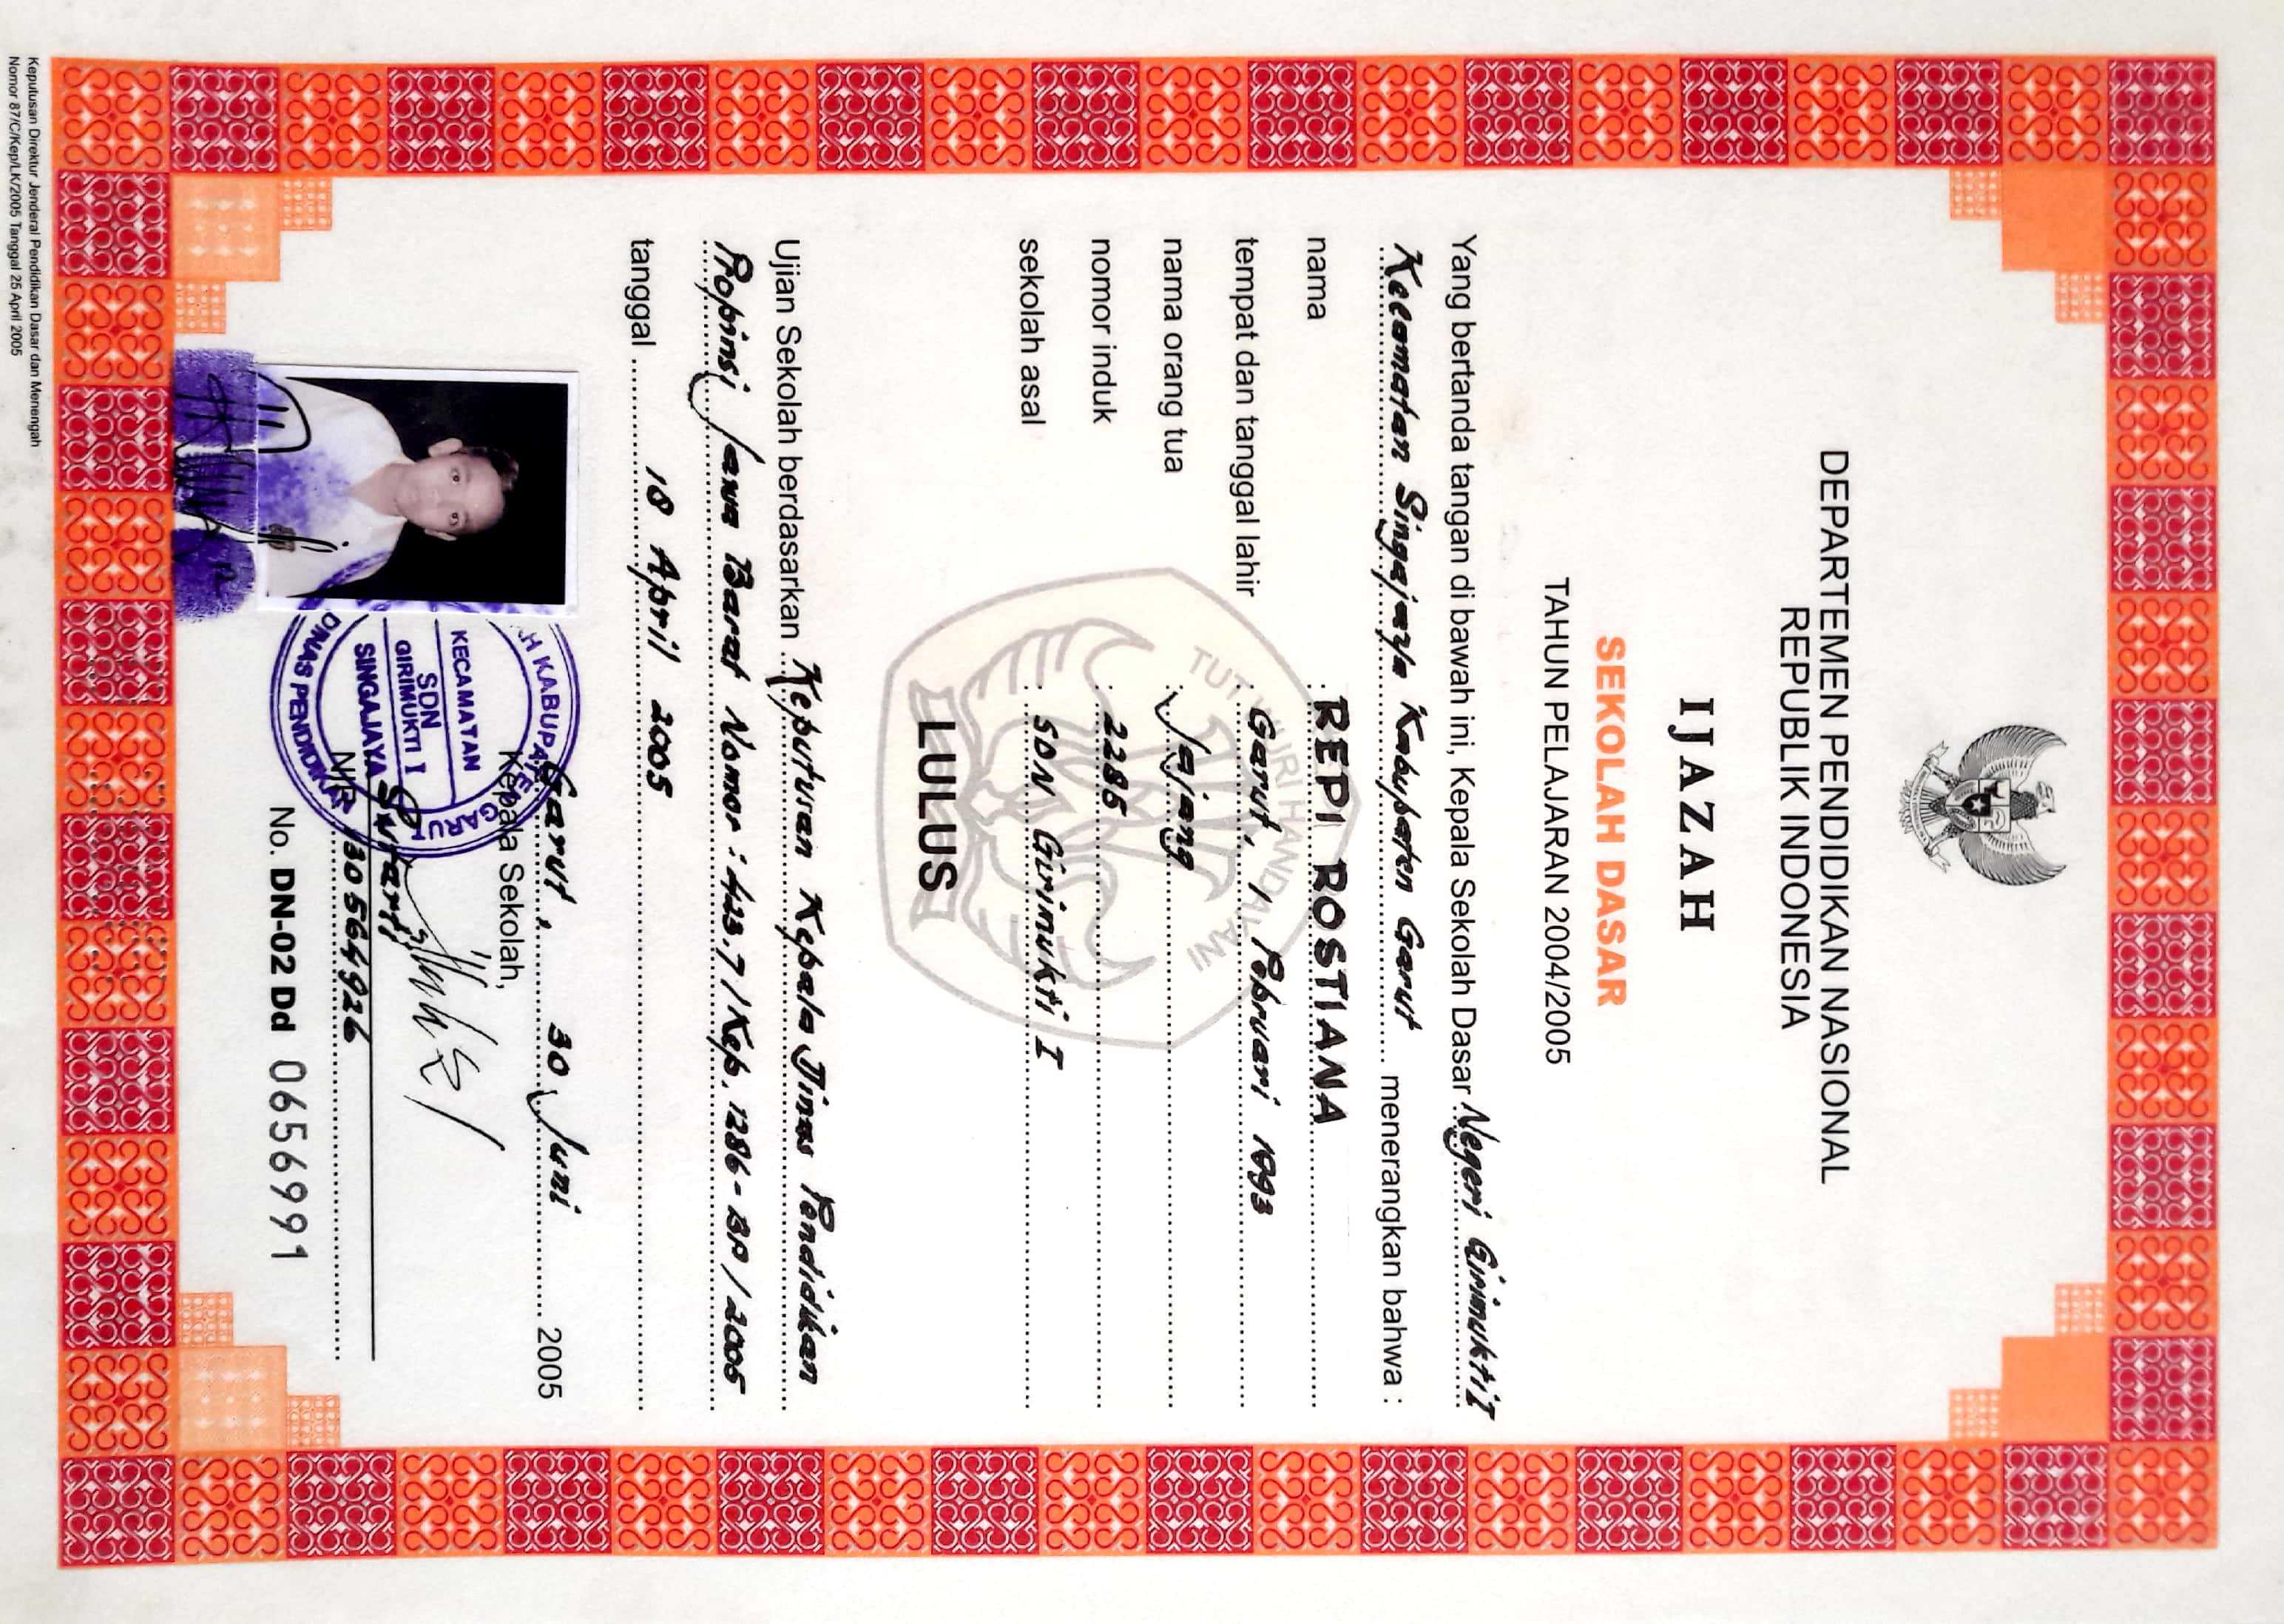 DEPARTEMEN PENDIDIKAN NASIONAL
REPUBLIK INDONESIA
IJAZAH
SEKOLAH DASAR
TAHUN PELAJARAN 2004/2005
Yang bertanda tangan di bawah ini, Kepala Sekolah Dasar Negeri Girimukti I
Kecamatan Singajaya Kabupaten Garut menerangkan bahwa :
nama : REPI ROSTIANA
tempat dan tanggal lahir : Garut, 1 Pebruari 1993
nama orang tua : Jajang
nomor induk : 2285
sekolah asal : SDN Girimukti I
TUT WURI HANDAYANI
LULUS
Ujian Sekolah berdasarkan Keputusan Kepala Dinas Pendidikan
Propinsi Jawa Barat Nomor : 423.7/Kep. 1286-BP/2005
tanggal 18 April 2005
Garut, 30 Juni 2005
Kepala Sekolah,
KABUPATEN GARUT
KECAMATAN
SDN
GIRIMUKTI I
SINGAJAYA
DINAS PENDIDIKAN
Sutarti
NIP 130564926
No. DN-02 Dd 0656991
Keputusan Direktur Jenderal Pendidikan Dasar dan Menengah
Nomor 87/C/Kep/LK/2005 Tanggal 25 April 2005